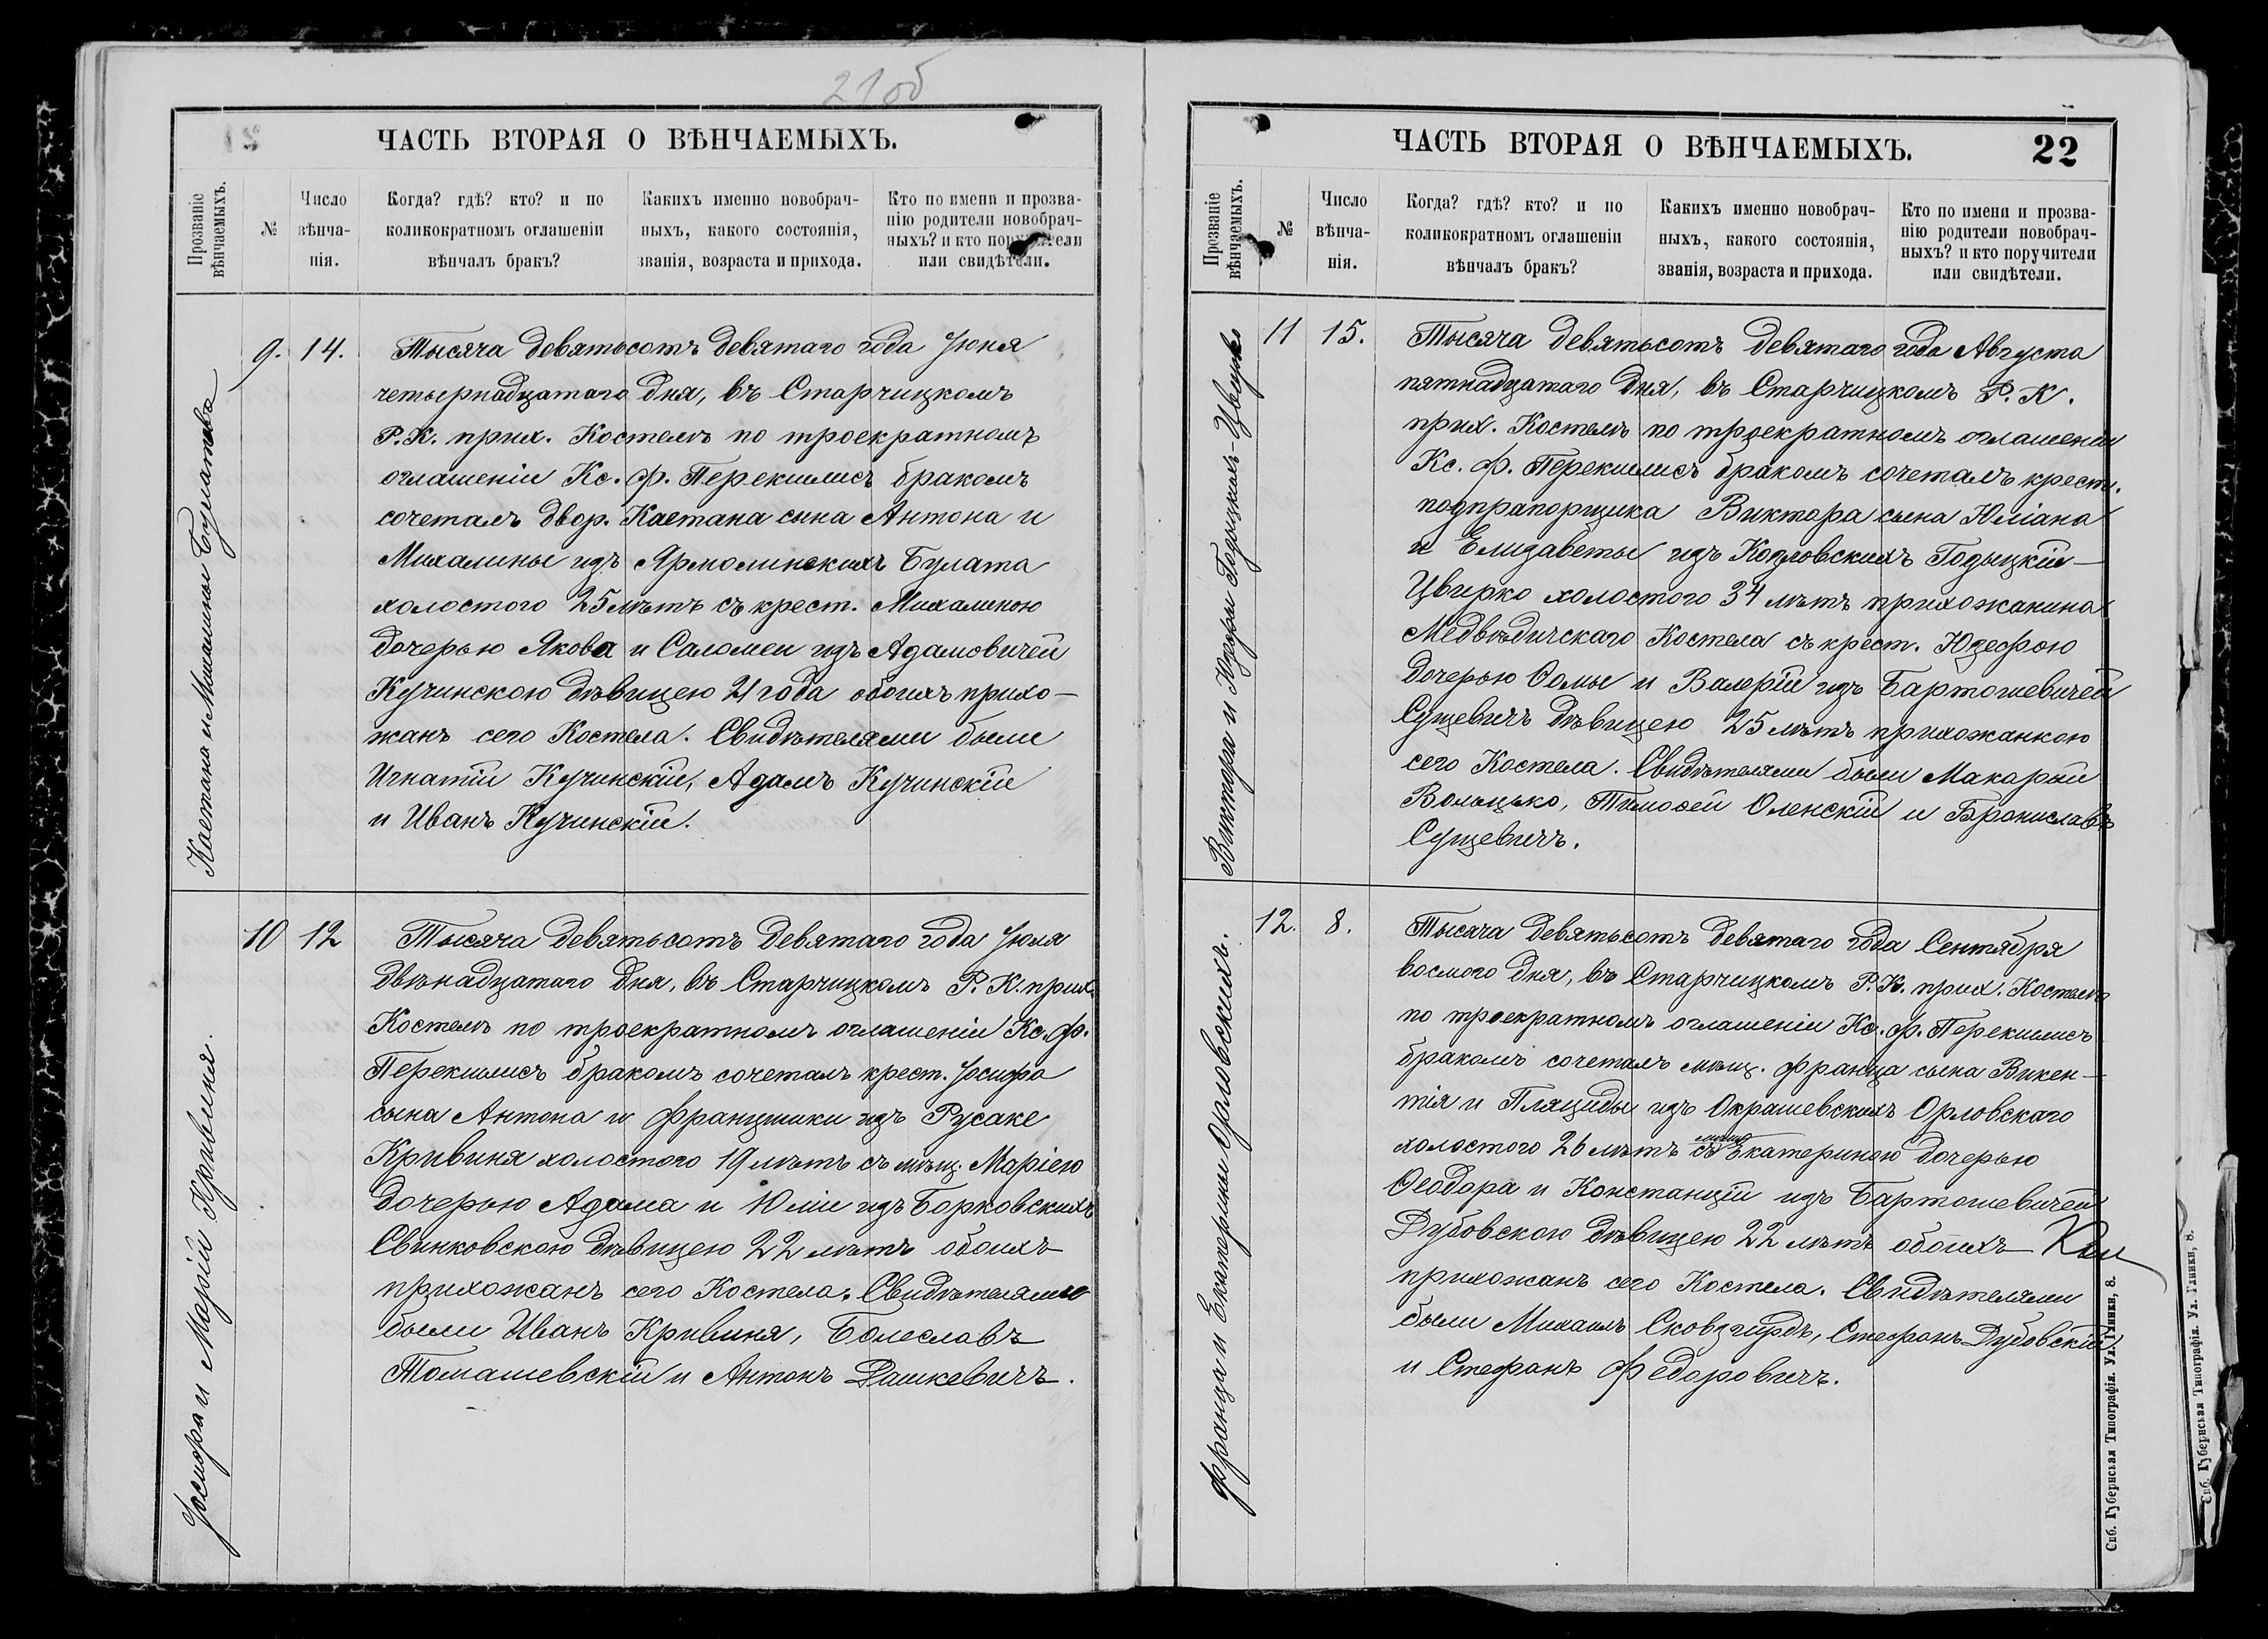 21об
ЧАСТЬ ВТОРАЯ О ВѢНЧАЕМЫХЪ.
Прозваніе вѣнчаемыхъ.
№
Число вѣнча-нія.
Когда? гдѣ? кто? и по коликократномъ оглашеніи вѣнчалъ бракъ?
Какихъ именно новобрач-ныхъ, какого состоянія, званія, возраста и прихода.
Кто по имени и прозва-нію родители новобрач-ныхъ? и кто поручители или свидѣтели.
Каетана и Михалины Булатовъ
9. 14.
Тысяча девятьсотъ девятаго года Іюня
четырнадцатаго дня, въ Старчицкомъ
Р. К. прих. Костелѣ по троекратномъ
оглашеніи Кс. Ф. Перекшлисъ бракомъ
сочеталъ двор. Каетана сына Антона и
Михалины изъ Ярмолинскихъ Булата
холостого 25 лѣтъ съ крест. Михалиною
дочерью Якова и Саломеи изъ Адамовичей
Кучинскою дѣвицею 21 года обоихъ прихо-
жанъ сего Костела. Свидѣтелями были
Игнатій Кучинскій, Адамъ Кучинскій
и Иванъ Кучинскій.
Іосифа и Маріи Кривиня.
10 12
Тысяча девятьсотъ девятаго года Іюля
двѣнадцатаго дня, въ Старчицкомъ Р. К. прих.
Костелѣ по троекратномъ оглашеніи Кс. Ф.
Перекшлисъ бракомъ сочеталъ крест. Іосифа
сына Антона и Францишки изъ Русаке
Кривиня холостого 19 лѣтъ съ мѣщ. Маріею
дочерью Адама и Юліи изъ Борковскихъ
Свинковскою дѣвицею 22 лѣтъ обоихъ
прихожанъ сего Костела. Свидѣтелями
были Иванъ Кривиня, Болеславъ
Томашевскій и Антонъ Дашкевичъ.
ЧАСТЬ ВТОРАЯ О ВѢНЧАЕМЫХЪ.
22
Прозваніе вѣнчаемыхъ.
№
Число вѣнча-нія.
Когда? гдѣ? кто? и по коликократномъ оглашеніи вѣнчалъ бракъ?
Какихъ именно новобрач-ныхъ, какого состоянія, званія, возраста и прихода.
Кто по имени и прозва-нію родители новобрач-ныхъ? и кто поручители или свидѣтели.
Виктора и Юзефы Годыцкихъ-Цвирко
11 15.
Тысяча девятьсотъ девятаго года Августа
пятнадцатаго дня, въ Старчицкомъ Р. К.
прих. Костелѣ по троекратномъ оглашеніи
Кс. Ф. Перекшлисъ бракомъ сочеталъ крест.
подпрапорщика Виктора сына Юліана
и Елизаветы изъ Козловскихъ Годыцкій-
Цвирко холостого 34 лѣтъ прихожанина
Медвѣдичскаго Костела съ крест. Юзефою
дочерью Ѳомы и Валеріи изъ Бартошевичей
Сущевичъ дѣвицею 25 лѣтъ прихожанкою
сего Костела. Свидѣтелями были Макарый
Тимоѳей Оленскій и Брониславъ
Сущевичъ.
Франца и Екатерины Орловскихъ.
12. 8.
Тысяча девятьсотъ девятаго года Сентября
восмого дня, въ Старчицкомъ Р. К. прих. Костелѣ
по троекратномъ оглашеніи Кс. Ф. Перекшлисъ
бракомъ сочеталъ мѣщ. Франца сына Викен-
тія и Пляциды изъ Окрашевскихъ Орловскаго
холостого 26 лѣтъ съ мѣщ. Екатериною дочерью
Ѳеодора и Констанціи изъ Бартошевичей
Дубовскою дѣвицею 22 лѣтъ обоихъ
прихожанъ сего Костела. Свидѣтелями
были Михаилъ Сковзгирдъ, Стефанъ Дубовскій
и Стефанъ Федоровичъ.
Спб. Губернская Типографія. Ул. Глинки, 8.
Спб. Губернская Типографія. Ул. Глинки, 8.